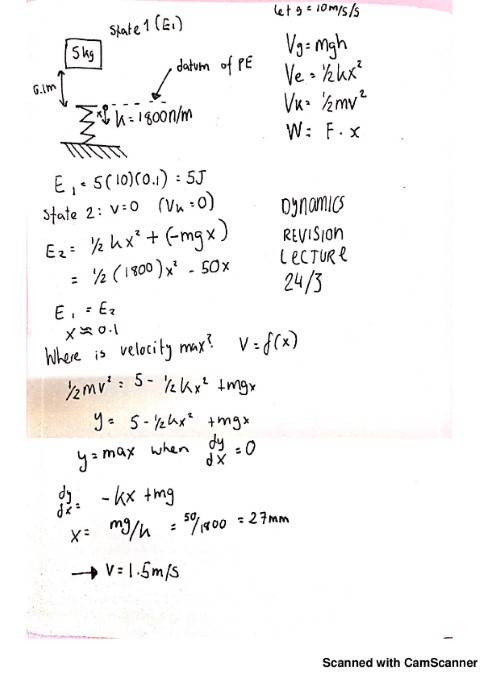 let g = 10m/s/s
State 1 (E₁)
5kg
0.1m
datum of PE
x
k = 1800n/m
Vg = mgh
Ve = ½kx²
Vk = ½mv²
W = F · x
E₁ = 5(10)(0.1) = 5J
State 2: v=0 (Vk = 0)
E₂ = ½kx² + (-mgx)
= ½(1800)x² - 50x
E₁ = E₂
x ≈ 0.1
DYNAMICS
REVISION
LECTURE
24/3
Where is velocity max? V = f(x)
½mv² = 5 - ½kx² + mgx
y = 5 - ½kx² + mgx
y = max when dy/dx = 0
dy/dx = -kx + mg
x = mg/k = 50/1800 = 27mm
→ V = 1.5m/s
Scanned with CamScanner